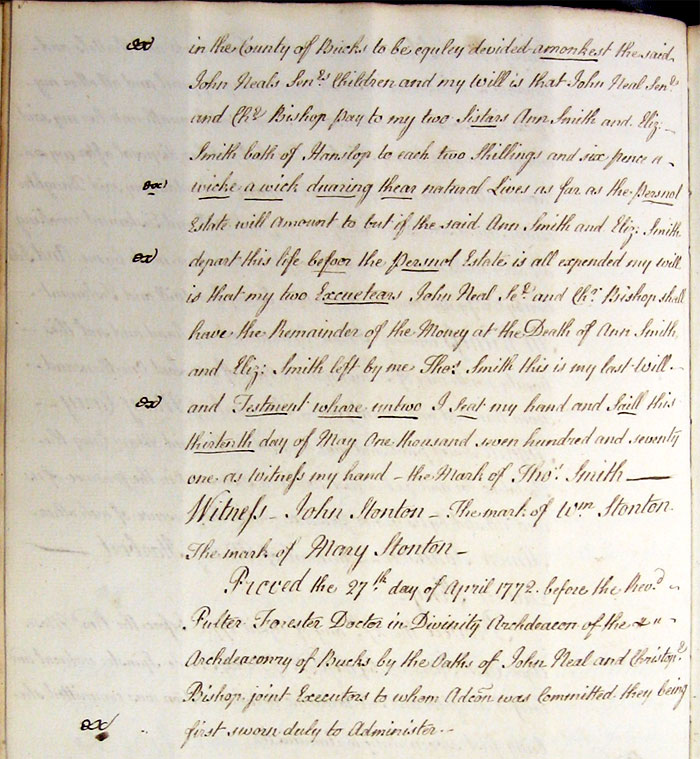 in the County of Bucks to be equley devided amonkest the said
John Neals Senrs Children and my will is that John Neal Senr
and Chr Bishop pay to my two Sistars Ann Smith and Eliz:
Smith both of Hanslop to each two Shillings and six pence a
wicke a wick duaring thear natural Lives as far as the Persnol
Estate will amount to but if the said Ann Smith and Eliz: Smith
depart this life befoor the Persnol Estate is all expended my will
is that my two Excuetears John Neal Ser and Chr Bishop shall
have the Remainder of the Money at the Death of Ann Smith
and Eliz: Smith left by me Thos Smith this is my last will
and Testment whare untwo I seat my hand and Saill this
thirtenth day of May One thousand seven hundred and seventy
one as Witness my hand – the Mark of Thos Smith —
Witness – John Stonton – The mark of Wm Stonton.
The mark of Mary Stonton –
Proved the 27th day of April 1772. before the Revd
Pulter Forester Doctor in Divinity Archdeacon of the
Archdeaconry of Bucks by the Oaths of John Neal and Christopr
Bishop joint Executors to whom Adcon was Committed they being
first sworn duly to Administer.